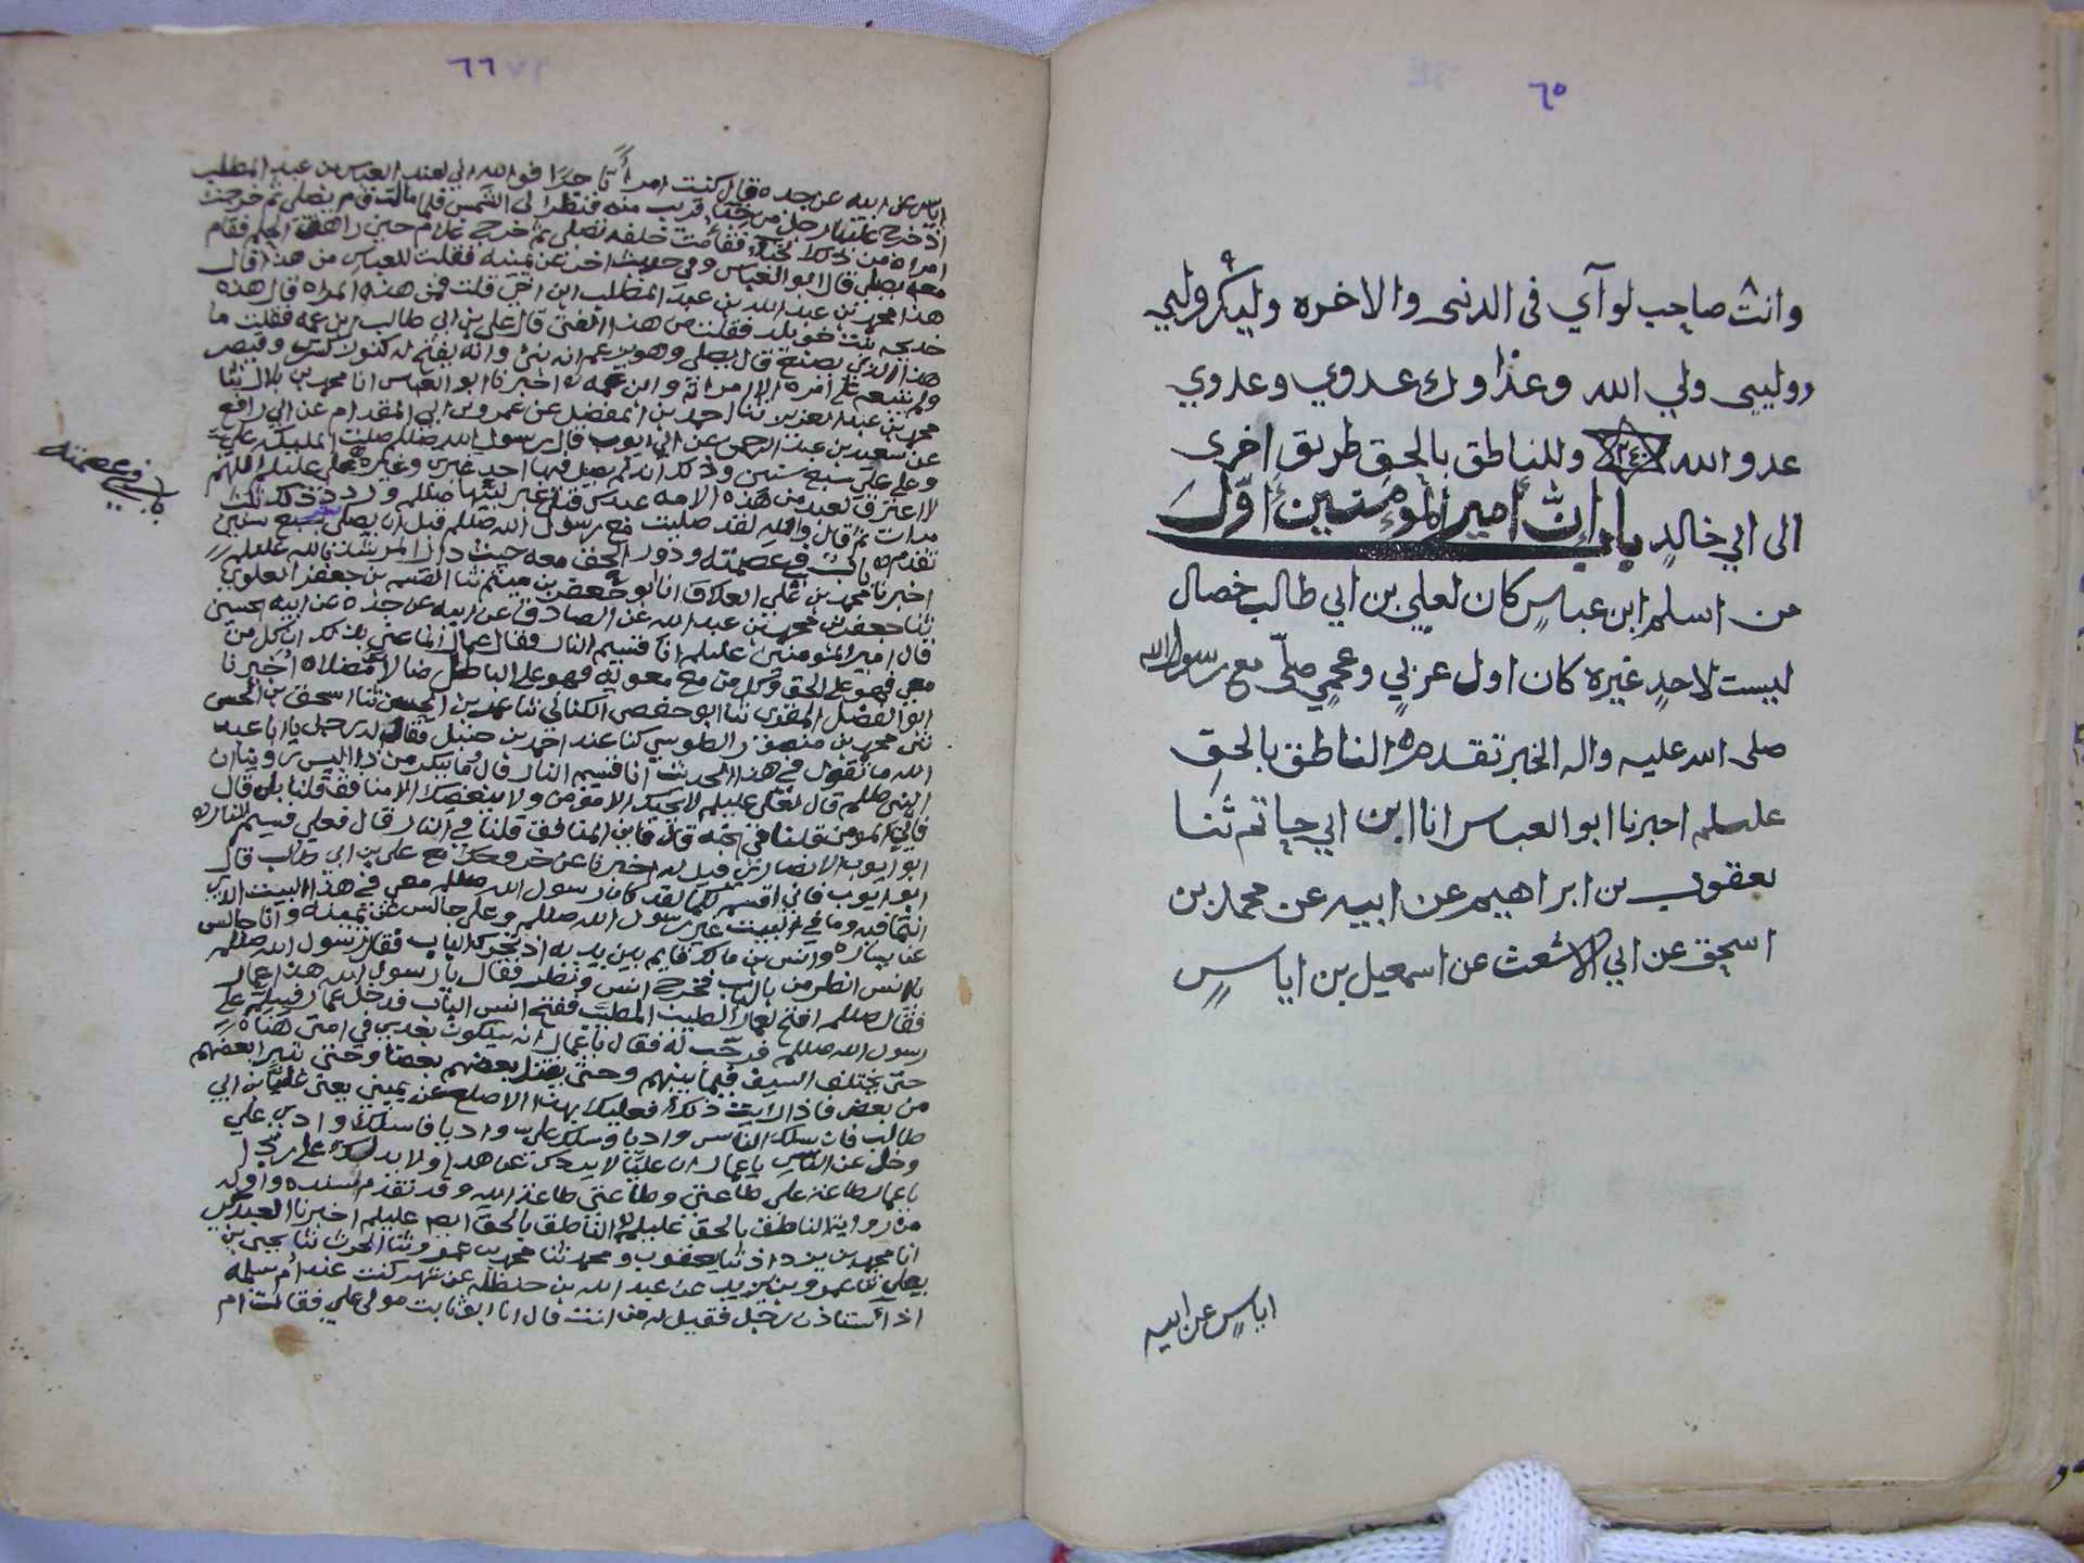 ٦٥
وانت صاحب لوآي في الدنيى والاخره وليك وليي
ووليي ولي الله وعدوك عدوي وعدوي
عدو الله وللناطق بالحق طريق اخرى
الى ابي خالد باب ان امير المؤمنين اوّل
من اسلم ابن عباس كان لعلي بن ابي طالب خصال
ليست لاحد غيره كان اول عربي وعجمي صلّى مع رسول الله
صلى الله عليه واله الخبر تقدم الناطق بالحق
علىلم اخبرنا ابو العباس انا ابن ابي حاتم ثنا
يعقوب بن ابراهيم عن ابيه عن محمد بن
اسحق عن ابي الاشعث عن اسمعيل بن اياس
اياس عن ابيه
٦٦
اياس عن ابيه عن جده قال كنت امرأً تاجرًا فوالله اني لعند العباس بن عبد المطلب
اذ خرج علينا رجل من خبآ قريب منه فنظر الى الشمس فلما مالت قام يصلي ثم خرجت
امراة من ذلك الخبآ فقامت خلفه تصلي ثم خرج غلام حين راهق الحلم فقام
معه يصلي قال ابو العباس وفي حديث اخر عن يمينه فقلت للعباس من هذا قال
هذا محمد بن عبد الله بن عبد المطلب ابن اخي قلت فمن هذه المراه قال هذه
خديجه بنت خويلد فقلت من هذا الفتى قال علي بن ابي طالب بن عمه فقلت ما
هذا الذي يصنع قال يصلي وهو يزعم انه نبي وانه يفتح له كنوز كسرى وقيصر
ولم يتبعه على امره الا امراته وابن عمه اخبرنا ابو العباس انا محمد بن بلال ثنا
محمد بن عبد العزيز ثنا احمد بن المفضل عن عمرو بن ابي المقدام عن ابي رافع
عن سعيد بن عبد الرحمن عن ابي ايوب قال رسول الله صللم صلت المليكة علي
وعلى علي سبع سنين وذلك انه لم يصل فيها احد غيري وغيره علي عليلم اللهم
لا اعترف لعبد من هذه الامه عبدك قبلي غير نبيها صللم وردد ذلك ثلث
مرات ثم قال والله لقد صليت مع رسول الله صللم قبل ان يصلي بسبع سنين
تقدم باب في عصمته ودور الحق معه حيث دار المرشد بالله عليلم
اخبرنا محمد بن علي العلاف انا ابو جعفر بن ميثم ثنا القسم بن جعفر العلوي
ثنا جعفر بن محمد بن عبد الله عن الصادق عن ابيه عن جده عن ابيه الحسين
قال امير المؤمنين عليلم انا قسيم النار فقال عمار انما عنى بذلك ان كل من
معي فهو على الحق وكل من مع معويه فهو على الباطل ضالا مضلا اخبرنا
ابو الفضل المقري ثنا ابو حفص الكتاني ثنا عمر بن الحسن ثنا اسحق بن الحسن
ثنى محمد بن منصور الطوسي كنا عند احمد بن حنبل فقال له رجل يا ابا عبد
الله ما تقول في هذا الحديث انا قسيم النار قال وما ينكر من ذا اليس روينا ان
النبي صللم قال لعلي عليلم لا يحبك الا مؤمن ولا يبغضك الا منافق قلنا بلى قال
فاين المومن قلنا في الجنه قال فاين المنافق قلنا في النار قال فعلي قسيم النار
ابو ايوب الانصاري قيل له اخبرنا عن خروجك مع علي بن ابي طالب قال
ابو ايوب فاني اقسم لكما لقد كان رسول الله صللم معي في هذا البيت الذي
انتما فيه وما في البيت غير رسول الله صللم وعلي جالس عن يمينه وانا جالس
عن يساره وانس بن مالك قايم بين يديه اذ تحرك الباب فقال رسول الله صللم
يا انس انظر من بالباب فخرج انس ونظر فقال يا رسول الله هذا عمار
فقال صللم افتح لعمار الطيب المطيب ففتح انس الباب فدخل عمار فسلم على
رسول الله صللم فرحّب له فقال يا عمار انه سيكون بعدي في امتي هناه
حتى يختلف السيف فيما بينهم وحتى يقتل بعضهم بعضا وحتى يتبرا بعضهم
من بعض فاذا رايت ذلك فعليك بهذا الاصلع عن يميني يعني عليا بن ابي
طالب فان سلك الناس واديا وسلك علي واديا فاسلك وادي علي
وخل عن الناس يا عمار ان عليّا لا يردك عن هدا ولا يدلك على ردا
يا عمار طاعة علي طاعتي وطاعتي طاعة الله وقد تقدم سنده واوله
من رواية الناطق بالحق عليلم الناطق بالحق ايضا عليلم اخبرنا العبدكي
انا محمد بن يزداد ثنا يعقوب ومحمد ثنا محمد بن عمرو ثنا الحرث ثنا يحيى بن
يعلى ثنا عمرو بن يزيد عن عبد الله بن حنظله عن شهر كنت عند ام سلمه
اذ استاذن رجل فقيل له من انت قال انا ابو ثابت مولى علي فقالت ام
باب في عصمته